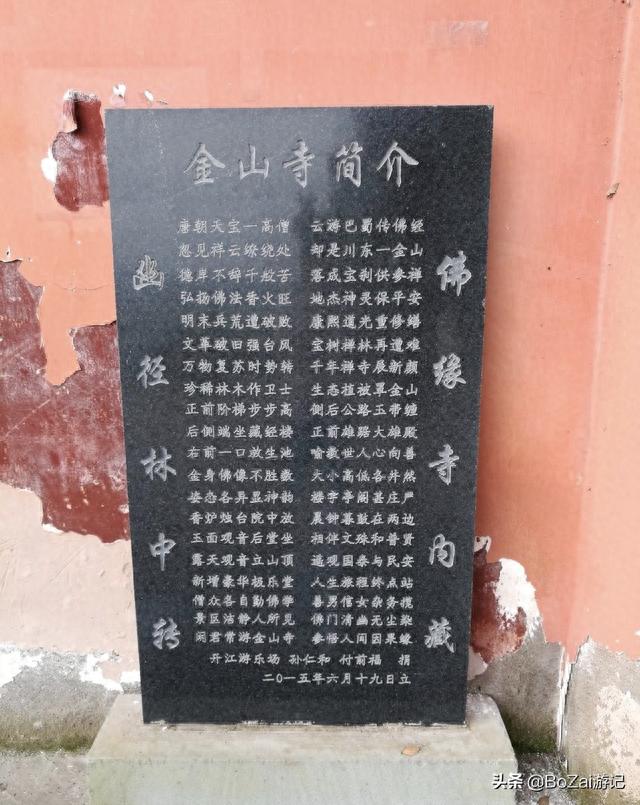 金山寺简介
佛缘寺内藏
幽径林中转
唐朝天宝一高僧 云游巴蜀传佛经
忽见祥云缭绕处 却是川东一金山
德岸不辞千般苦 落成宝刹供参禅
弘扬佛法香火旺 地杰神灵保平安
明末兵荒遭破败 康熙道光重修缮
文革破旧强台风 宝树祥林再遭难
万物复苏时势转 千年禅寺展新颜
珍稀林木作卫士 生态植被罩金山
正前阶梯步步高 侧后公路玉带缠
后侧端坐藏经楼 正前雄踞大雄殿
右前一口放生池 喻教世人心向善
金身佛像不胜数 大小高低各井然
姿态各异显神韵 楼宇亭阁甚庄严
香炉烛台院中放 晨钟暮鼓在两边
玉面观音后堂坐 相伴文殊和普贤
露天观音立山顶 遥观国泰与民安
新增豪华极乐堂 人生旅程终点站
僧众各自勤佛学 善男信女杂务揽
景区洁静人所见 佛门清幽无尘染
闲君常游金山寺 参悟人间因果缘
开江游乐场 孙仁和 付前福 捐
二〇一五年六月十九日立
头条 @BoZai游记